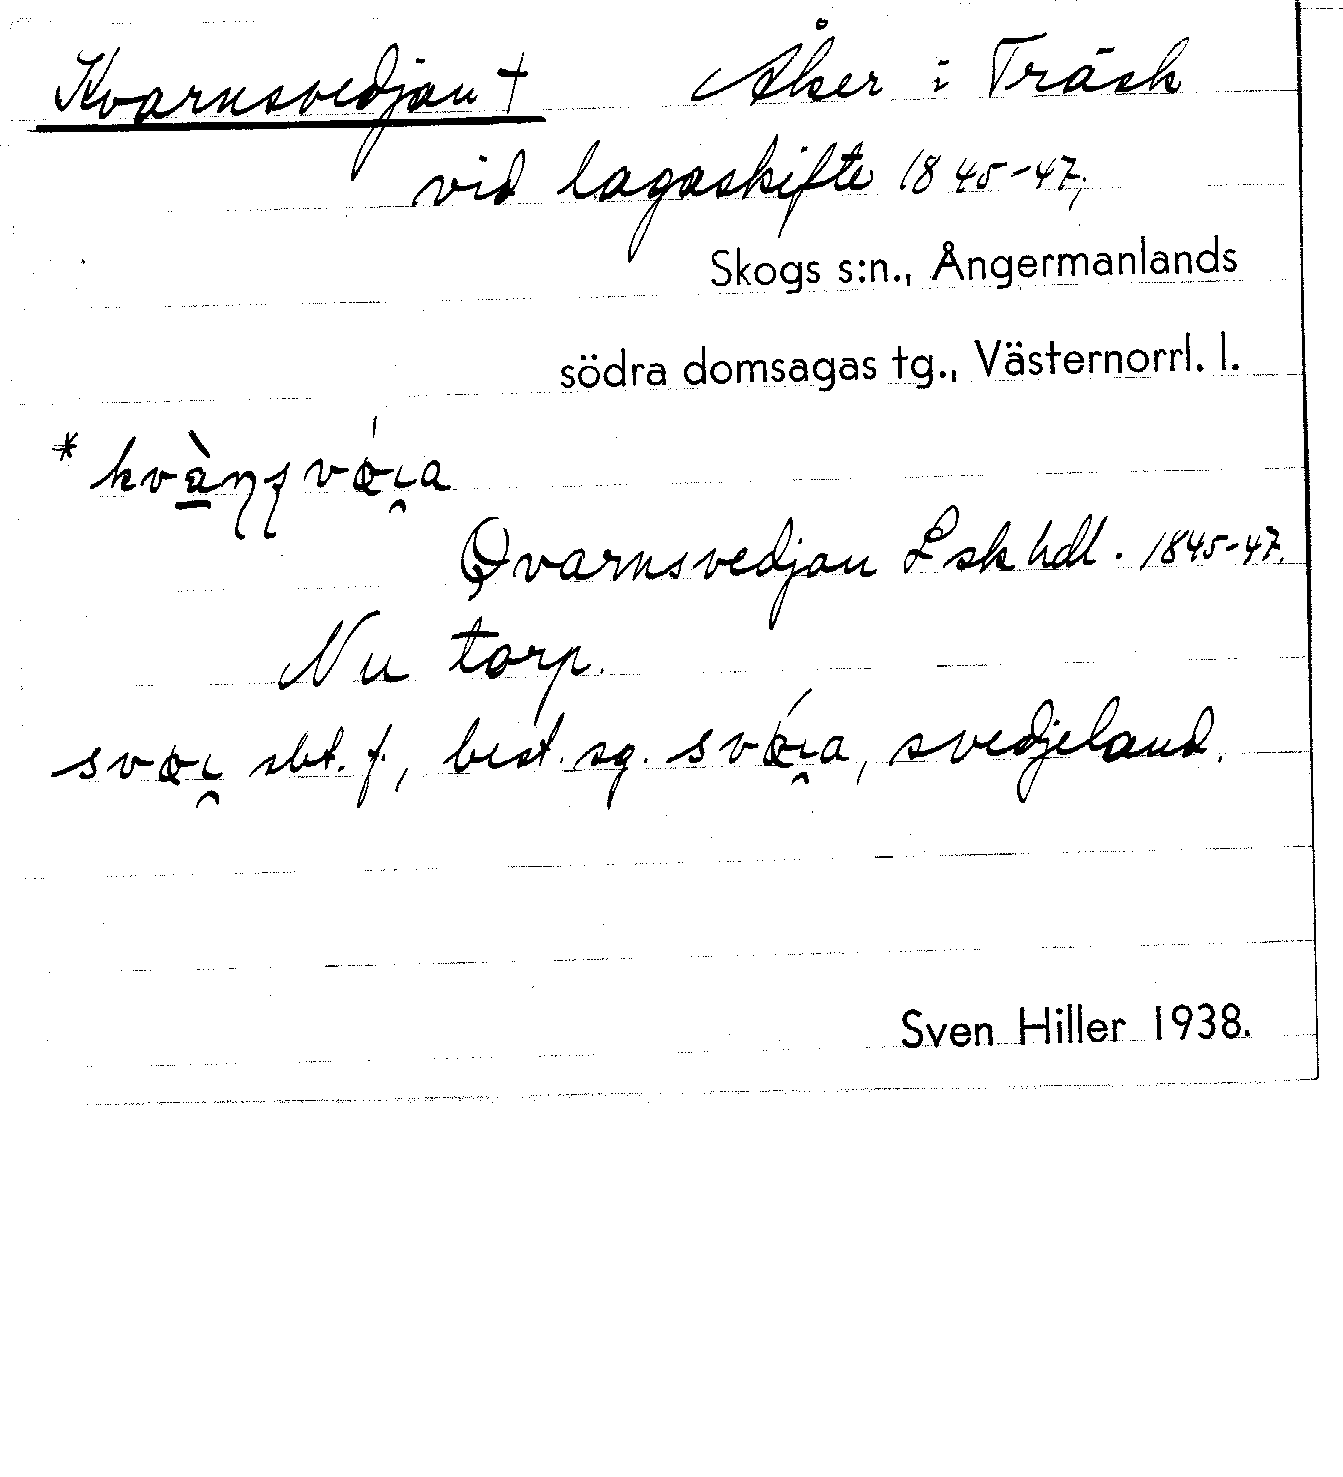 Kvarnsvedjan † Åker i Träsk
vid lagaskifte 1845-47.
Skogs s:n., Ångermanlands
södra domsagas tg., Västernorrl. l.
Qvarnsvedjan Lskhdl. 1845-47.
Nu torp.
sbt. f., best. sg. svedjeland.
Sven Hiller 1938.